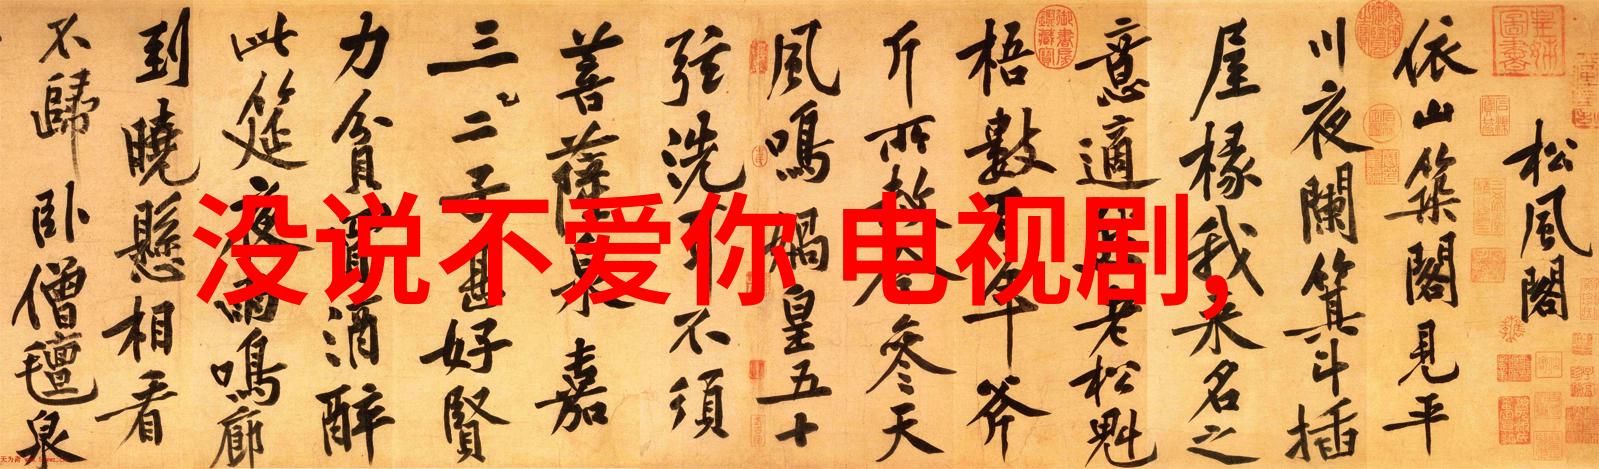 松風閣
依山築閣見平
川夜闌箕斗插
屋椽我來名之
意適老松魁
梧數百年斧
斤所赦今參天
風鳴媧皇五十
弦洗耳不須
菩薩泉嘉
三二子甚好賢
力貧買酒醉
此筵夜雨鳴廊
到曉懸相看
不歸臥僧氈泉
没说不爱你 电视剧,
皇姊圖書